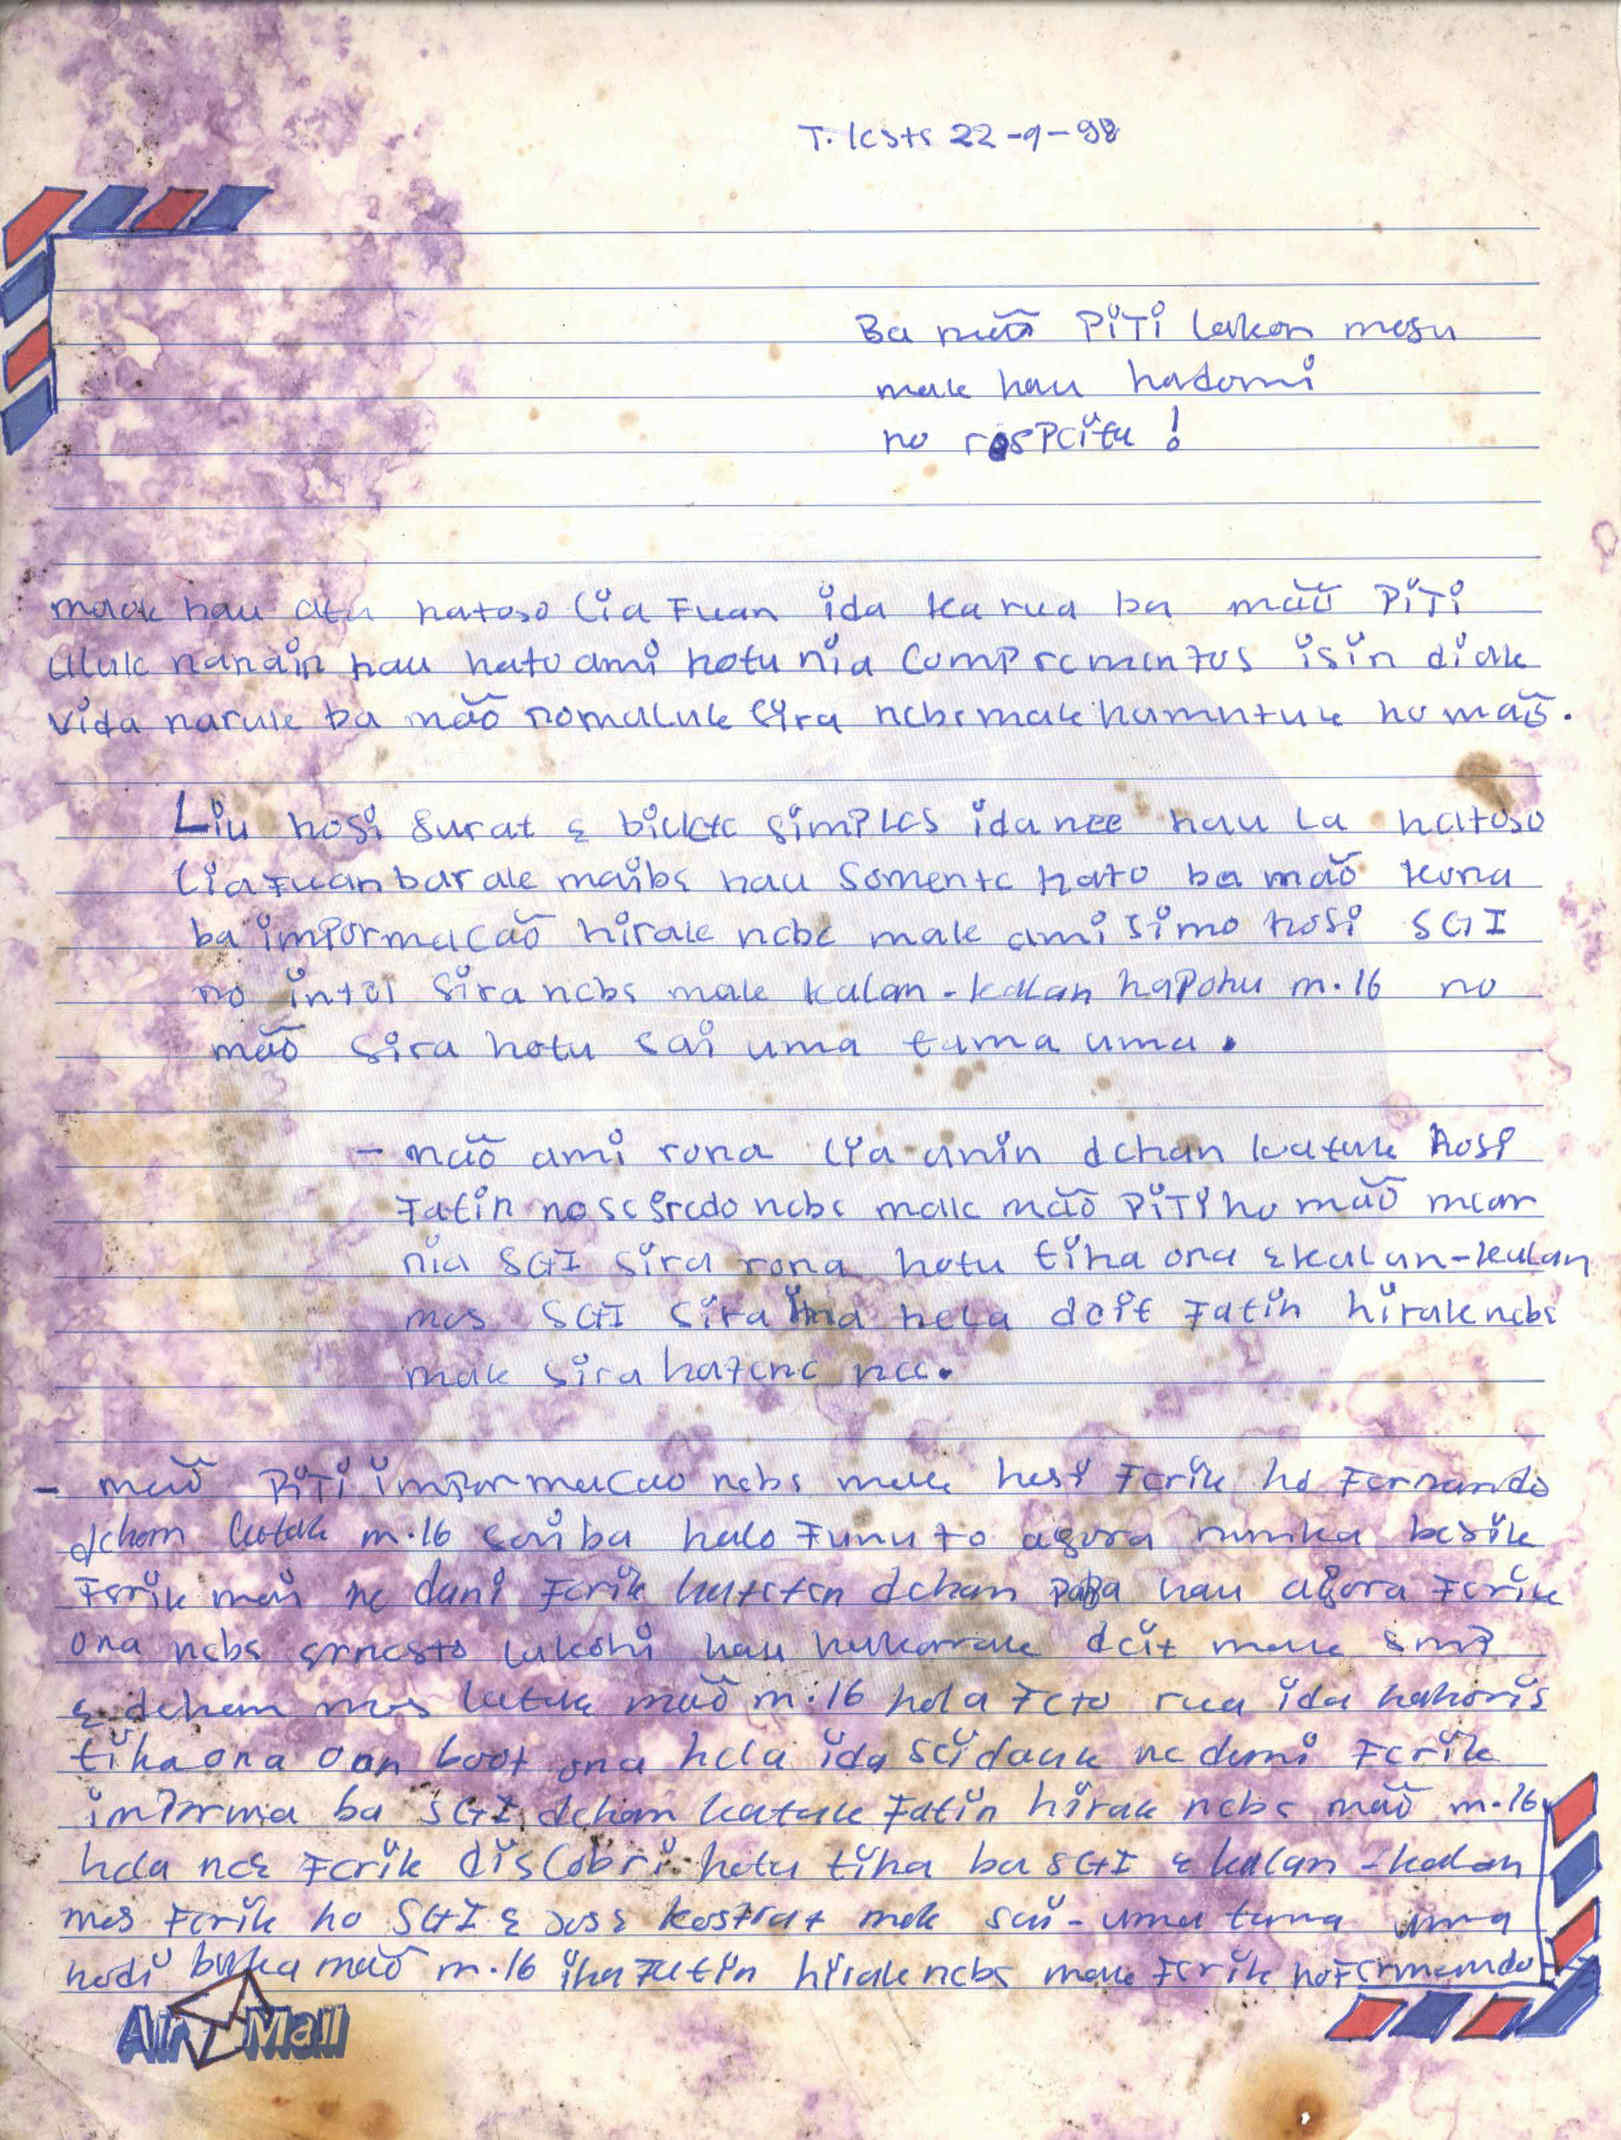 T. Leste 22-9-98
Ba maõ PiTi Lakon mesu
mak hau hadomi
no respeitu!
maõk hau atu hatoso lia Fuan ida ka rua ba maõ PiTi
uluk nanain hau hato ami hotu nia Comprementos isin diak
vida naruk ba maõ nomaluk sira nebe mak hamutuk ho maõ.
Liu hosi surat e bilete simples ida nee hau la hatoso
lia Fuan barak maibe hau somente hato ba maõ kona
ba imformacaõ hirak nebe mak ami simo hosi SGI
no intel sira nebe mak kalan-kalan hapohu m.16 no
maõ sira hotu sai uma tama uma.
- maõ ami rona lia anin dehan katak hosi
Fatin no segredo nebe mak maõ PiTi ho maõ mear
nia SGI sira rona hotu tiha ona e kalan-kalan
mos SGI sira iha hela deit Fatin hirak nebe
mak sira hatene nee.
- maõ PiTi imformacao nebe mak hosi Ferik ho Fernando
dehan katak m.16 sai ba halo Funu to agora nunka besik
Ferik mai ne duni Ferik hateten dehan papa hau agora Ferik
ona nebe ernesto lakohi hau hukarak deit mak
e dehan mos katak maõ m.16 hela Feto rua ida hahoris
tiha ona oan boot ona hela ida seidauk ne duni Ferik
imforma ba SGI dehan katak Fatin hirak nebe maõ m.16
hela nee Ferik discobri hotu tiha ba SGI e kalan-kalan
mos Ferik ho SGI e kostrat mak sai-uma tama uma
hodi buka maõ m.16 iha Fatin hirak nebe mak Ferik ho Fernando
Air Mail